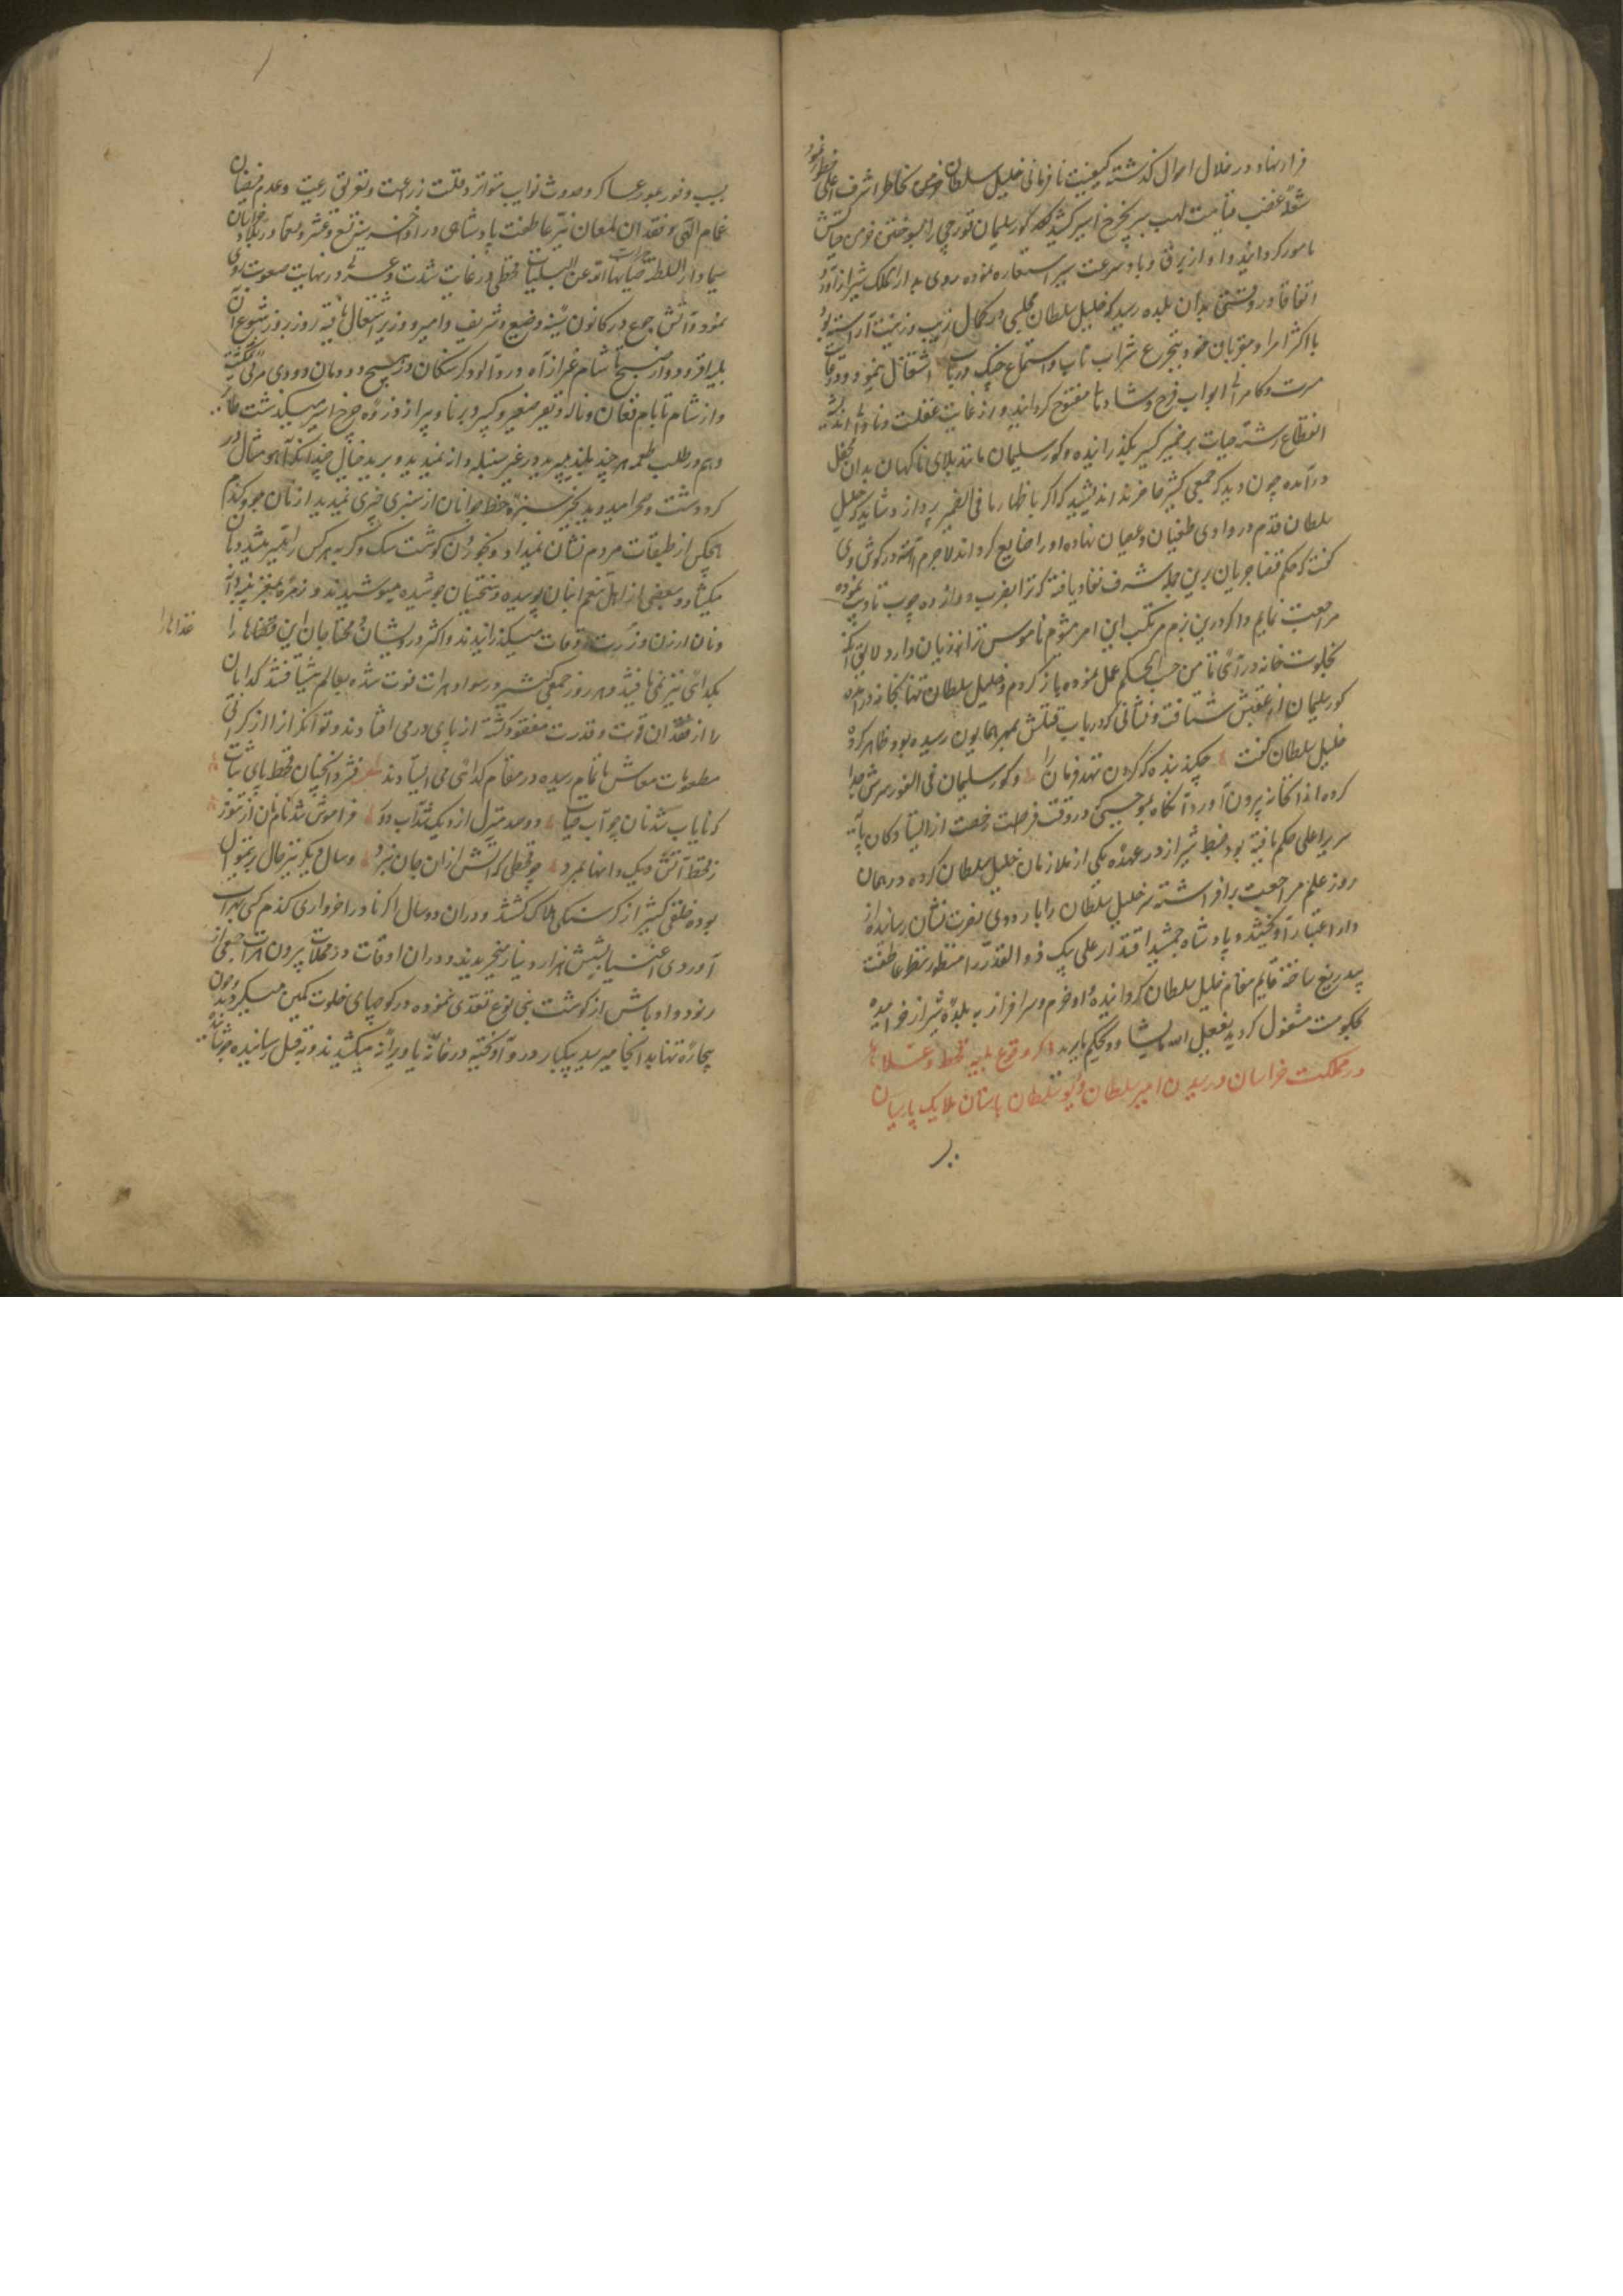 قرار نهاد و در خلال احوال گذشته کیفیت نافرمانی خلیل سلطان خاطر اشرف اعلی
شعلهٔ غضب قیامت لهب سر بچرخ اثیر کشید کور سلیمان قورچی را بسوختن خرمن حیاتش
مامور کردانید و او از برق و باد سرعت سیر استعاره نموده روی بدار الملک شیراز آورد
اتفاقا در وقتی بدان بلده رسید که خلیل سلطان مجلسی در کمال زیب و زینت آراسته بود
با اکثر امرا و مقربان خود بتجرع شراب ناب و استماع چنک و رباب اشتغال مینمود و
مسرت و کامرانی ابواب فرح و شادمانی مفتوح کردانیده و از غایت غفلت و نادانی
انقطاع رشتهٔ حیات بر ضمیر کسیر نکذرانیده و کور سلیمان مانند بلای ناکهان بدان محفل
درآمده چون دید که جمعی کثیر حاضرند اندیشید که اکر باظهار ما فی الضمیر پردازد شاید که خلیل
سلطان قدم در وادی طغیان و عصیان نهاده او را ضایع کرداند لاجرم آهسته در کوش وی
کفت که حکم قضا جریان برین جمله شرف نفاذ یافته که ترا بضرب دوازده چوب تادیب نموده
مراجعت نمایم و اکر درین بزم مرتکب این امر شوم ناموس ترا زیان دارد لایق آنکه
بخلوت خانه درآئی تا من حسب الحکم عمل نموده باز کردم و خلیل سلطان تنها بخانه درآمده
کور سلیمان از عقبش شتافت و نشانی که در باب قتلش بمهر همایون رسیده بود ظاهر کرد
خلیل سلطان کفت چکند بنده که کردن ننهد فرمان را و کور سلیمان فی الفور سرش جدا
کرده از آن خانه بیرون آورد آنکاه بموجبی که در وقت فرصت رخصت از ایستادکان پایهٔ
سریر اعلی حکم یافته بود ضبط شیراز در عهدهٔ یکی از ملازمان خلیل سلطان کرده در همان
روز علم مراجعت برافراشته سر خلیل سلطان را باردوی نصرت نشان رسانیده از
دار اعتبار آویختند و پادشاه جمشید اقتدار علی بیک ذو القدر را منظور نظر عاطفت
بیدریغ ساخته قایم مقام خلیل سلطان کردانید و او خرم و سرافراز به بلدهٔ شیراز خرامیده
بحکومت مشغول کردید یفعل الله ما یشاء و یحکم ما یرید ذکر وقوع بلیه قحط و غلا
در مملکت خراسان و رسیدن امیر سلطان و دیو سلطان باستان ملایک پاسبان
بسبب وفور عبور عساکر و حدوث نوایب متواتر و قلت زراعت و تفرق رعیت و عدم فیضان
غمام الهی و فقدان لمعان نیر عاطفت پادشاهی در اواخر سنه تسع و عشر و تسعمایه در بلاد خراسان
سیما دار السلطنه هرات صانها الله عن البلیات قحطی در غایت شدت و عسرتی در نهایت صعوبت روی
نمود و آتش جوع در کانون سینهٔ وضیع و شریف و امیر و وزیر اشتعال یافته روز بروز شیوع آن
بلیه افزود و از صبح تا شام غیر از آه دردآلود کرسنکان در هیچ دودمان دودی مرئی نکشت
و از شام تا بام فغان و ناله و نفیر صغیر و کبیر و برنا و پیر از ذروهٔ چرخ اثیر میکذشت طایر
وهم در طلب طعمه هر چند بلند میپرید غیر سنبله دانه نمیدید و برید خیال چندانکه آهو مثال در
کرد دشت و صحرا میدوید بجز سبزهٔ خط جوانان از سبزی چیزی نمیدید از نان جو و کندم
هیچکس از طبقات مردم نشان نمیداد و بخوردن کوشت سک و کربه هر کس را میسر میشد زبان
میکشاد و بعضی از اهل تنعم انبان پوسیده و سختیان جوشیده مینوشیدند و زمرهٔ
و نان ارزن و ذرت اوقات میکذرانیدند و اکثر درویشان و محتاجان این غذاها را
غذاها را
بکدائی نیز نمی یافتند و هر روز جمعی کثیر در سواد هرات فوت شده بعالم میشتافتند کدایان
را از فقدان قوت و قدرت مفقود کشته از پای درمی افتادند و توانکران را از کرانی
مطعومات معاش باتمام رسیده در مقام کدائی می ایستادند شعر فشرد آنچنان قحط پای ثبات
که نایاب شد نان چو آب حیات دو صد منزل از دیک شد آب دور فراموش شد نام نان از تنور
ز قحط آتش دیک دانها بمرد چو قحطی که آتش ازان جان نبرد و سال دیکر نیز حال برینموال
بوده خلقی کثیر از کرسنکی هلاک کشتند و در آن دو سال اکر نادرا خرواری کندم کسی بهرات
آوردی اغنیا بشش هزار دینار میخریدند و در آن اوقات در محلات بیرون هرات جمعی از
رنود و اوباش از کوشت بنی نوع تغذی نموده در کوچهای خلوت کمین میکردند و چون
بیچارهٔ تنها بدانجا میرسید بیکبار درو آویخته در خانه یا ویرانه میکشیدند و بقتل رسانیده